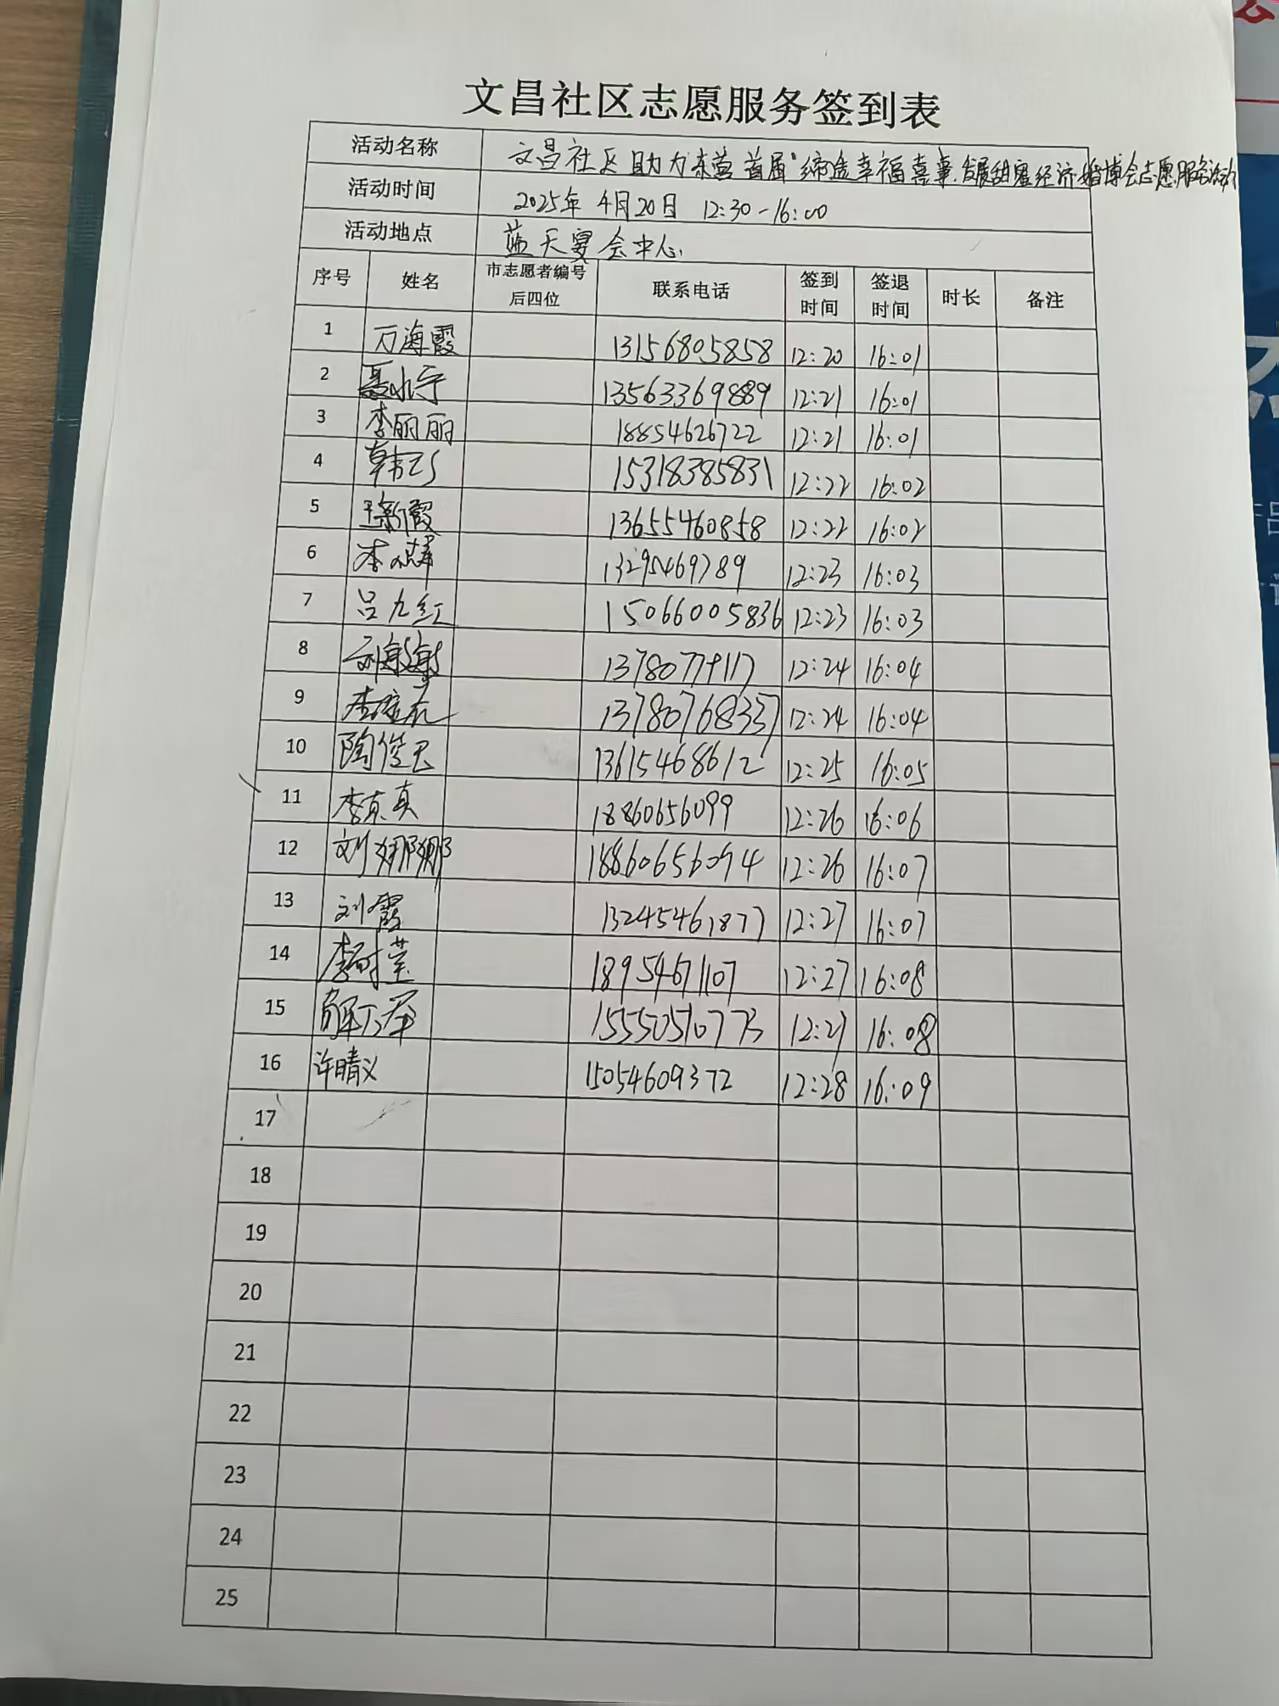 文昌社区志愿服务签到表
活动名称 文昌社区助力东营首届"缔造幸福喜事、发展甜蜜经济"婚博会志愿服务活动
活动时间 2025年4月20日 12:30-16:00
活动地点 蓝天宴会中心
序号 姓名 市志愿者编号后四位 联系电话 签到时间 签退时间 时长 备注
1 万海霞 13156805858 12:20 16:01
2 13563369889 12:21 16:01
3 李丽丽 18854626722 12:21 16:01
4 15318385831 12:22 16:02
5 王新霞 13655460858 12:22 16:02
6 13295469789 12:23 16:03
7 吕九红 15066005836 12:23 16:03
8 12:24 16:04
9 13780768337 12:24 16:04
10 13615468612 12:25 16:05
11 李真真 18860656099 12:26 16:06
12 刘娜娜 18860656094 12:26 16:07
13 刘霞 13245461877 12:27 16:07
14 18954671107 12:27 16:08
15 15550510773 12:27 16:08
16 许晴义 15054609372 12:28 16:09
17
18
19
20
21
22
23
24
25